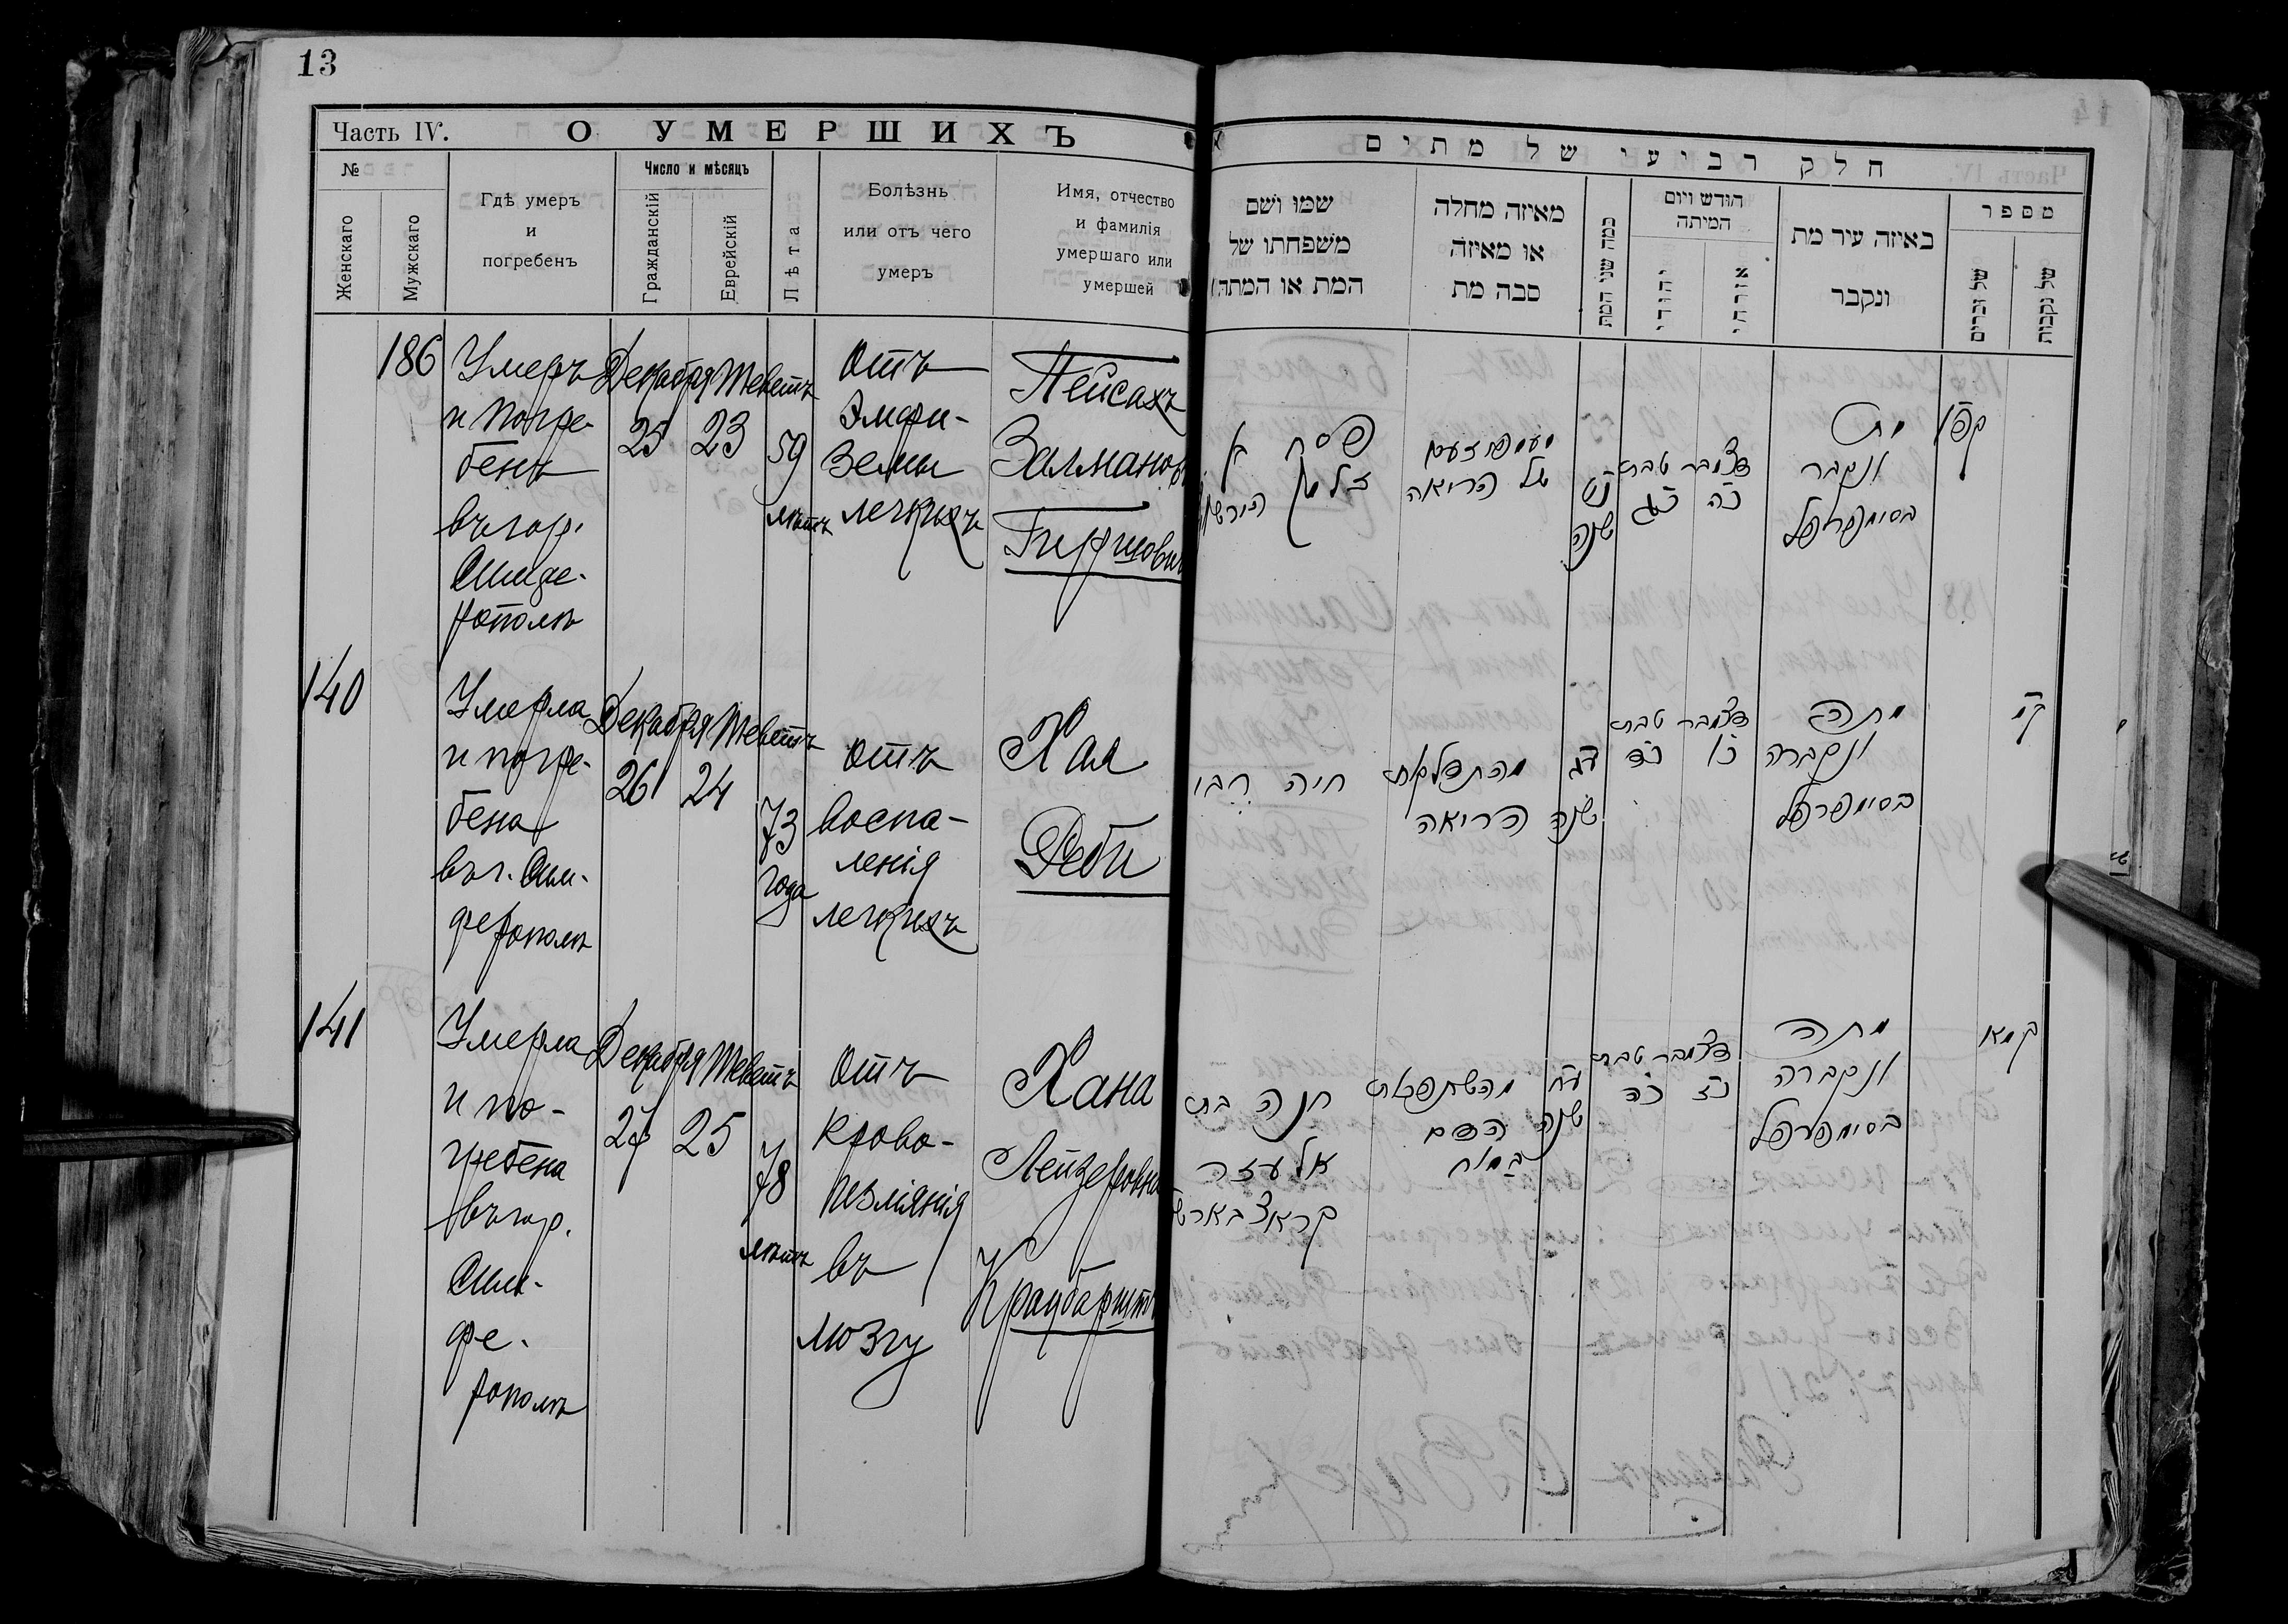 13
Часть IV.
О УМЕРШИХЪ
№
Женскаго
Мужскаго
Гдѣ умеръ
и
погребенъ
Число и мѣсяцъ
Гражданскій
Еврейскій
Лѣта
Болѣзнь
или отъ чего
умеръ
Имя, отчество
и фамилія
умершаго или
умершей
186
Умеръ
и погре-
бенъ
въ гор.
Симфе-
рополѣ
Декабря
25
Теветъ
23
59
лѣтъ
Отъ
Эмфи-
земы
легкихъ
Пейсахъ
Залмановъ
140
Умерла
и погре-
бена
въ г. Сим-
ферополѣ
Декабря
26
Теветъ
24
73
года
Отъ
воспа-
ленія
легкихъ
Хая
Деби
141
Умерла
и по-
гребена
въ гор.
Сим-
фе-
рополѣ
Декабря
27
Теветъ
25
78
лѣтъ
Отъ
крово-
изліянія
въ
мозгу
Хана
Лейзеровна
חלק רביעי של מתים
מספר
של נקבות
של זכרים
באיזה עיר מת
ונקבר
חודש ויום
המיתה
אזרחי
יהודי
כמה שני המת
מאיזה מחלה
או מאיזה
סבה מת
שמו ושם
משפחתו של
המת או המתה
קפו
מת
ונקבר
בסימפרפל
דצמבר
כה
טבת
כג
נט
שנה
של הריאה
פסח
זלמן
קמ
מתה
ונקברה
בסימפרפל
דצמבר
כו
טבת
כד
עג
שנה
מהתדלקת
הריאה
חיה
קמא
מתה
ונקברה
בסימפרפל
דצמבר
כז
טבת
כה
עח
שנה
מהשתפכת
הדם
במוח
חנה בת
אלעזר